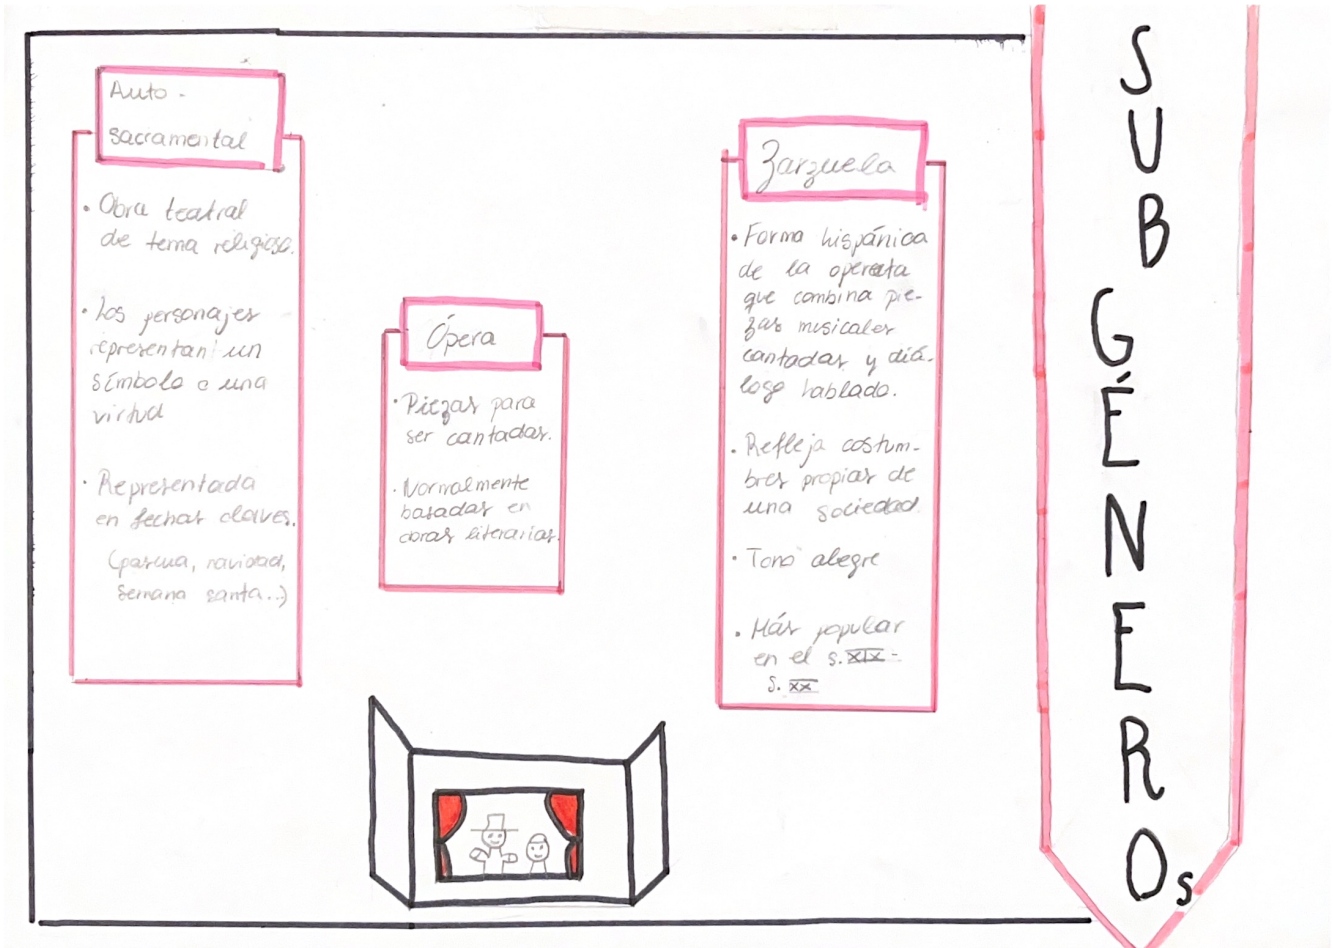 Auto-
sacramental
• Obra teatral
de tema religioso.
• Los personajes
representan un
símbolo o una
virtud
• Representada
en fechas claves.
(pascua, navidad,
semana santa...)
Ópera
• Piezas para
ser cantadas.
• Normalmente
basadas en
obras literarias.
Zarzuela
• Forma hispánica
de la opereta
que combina pie-
zas musicales
cantadas y diá-
logo hablado.
• Refleja costum-
bres propias de
una sociedad
• Tono alegre
• Más popular
en el s. XIX -
s. XX
SUB GÉNEROs